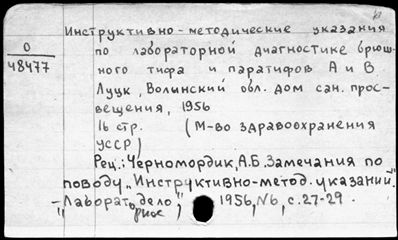 Инструктивно-методические указания
О
48477
по лабораторной диагностике брюш-
ного тифа и паратифов А и В
Луцк, Волынский обл. дом сан. прос-
вещения, 1956
16 стр. (М-во здравоохранения
УССР)
Рец.: Черномордик, А.Б. Замечания по
поводу „Инструктивно-метод. указаний".
- „Лаборат. дело", 1956, №6, с. 27-29.